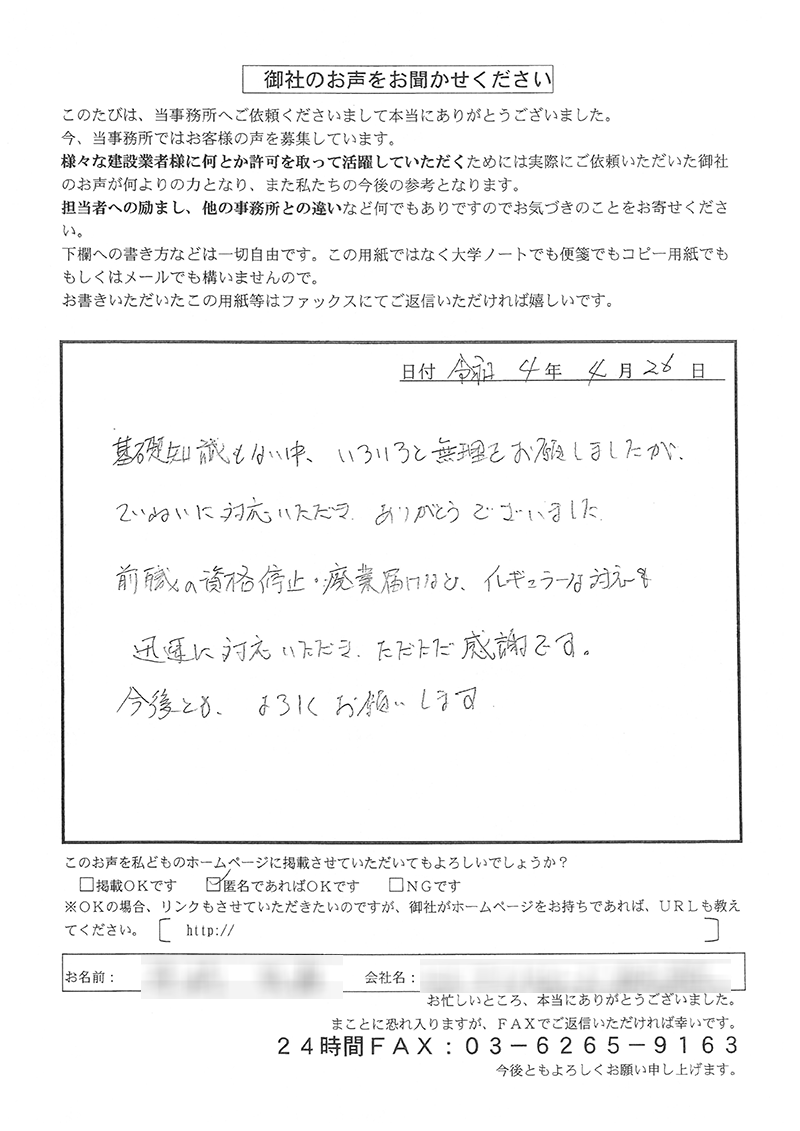 御社のお声をお聞かせください
このたびは、当事務所へご依頼くださいまして本当にありがとうございました。
今、当事務所ではお客様の声を募集しています。
様々な建設業者様に何とか許可を取って活躍していただくためには実際にご依頼いただいた御社
のお声が何よりの力となり、また私たちの今後の参考となります。
担当者への励まし、他の事務所との違いなど何でもありですのでお気づきのことをお寄せくださ
い。
下欄への書き方などは一切自由です。この用紙ではなく大学ノートでも便箋でもコピー用紙でも
もしくはメールでも構いませんので。
お書きいただいたこの用紙等はファックスにてご返信いただければ嬉しいです。
日付 令和 4 年 4 月 26 日
基礎知識もない中、いろいろと無理をお願しましたが、
ていねいに対応いただき、ありがとうございました。
前職の資格停止・廃業届けなど、イレギュラーな対応も
迅速に対応いただき、ただただ感謝です。
今後とも、よろしくお願いします。
このお声を私どものホームページに掲載させていただいてもよろしいでしょうか？
□掲載ＯＫです ☑匿名であればＯＫです □ＮＧです
※ＯＫの場合、リンクもさせていただきたいのですが、御社がホームページをお持ちであれば、ＵＲＬも教え
てください。 [ http:// ]
お名前： 会社名：
お忙しいところ、本当にありがとうございました。
まことに恐れ入りますが、ＦＡＸでご返信いただければ幸いです。
２４時間ＦＡＸ：０３－６２６５－９１６３
今後ともよろしくお願い申し上げます。